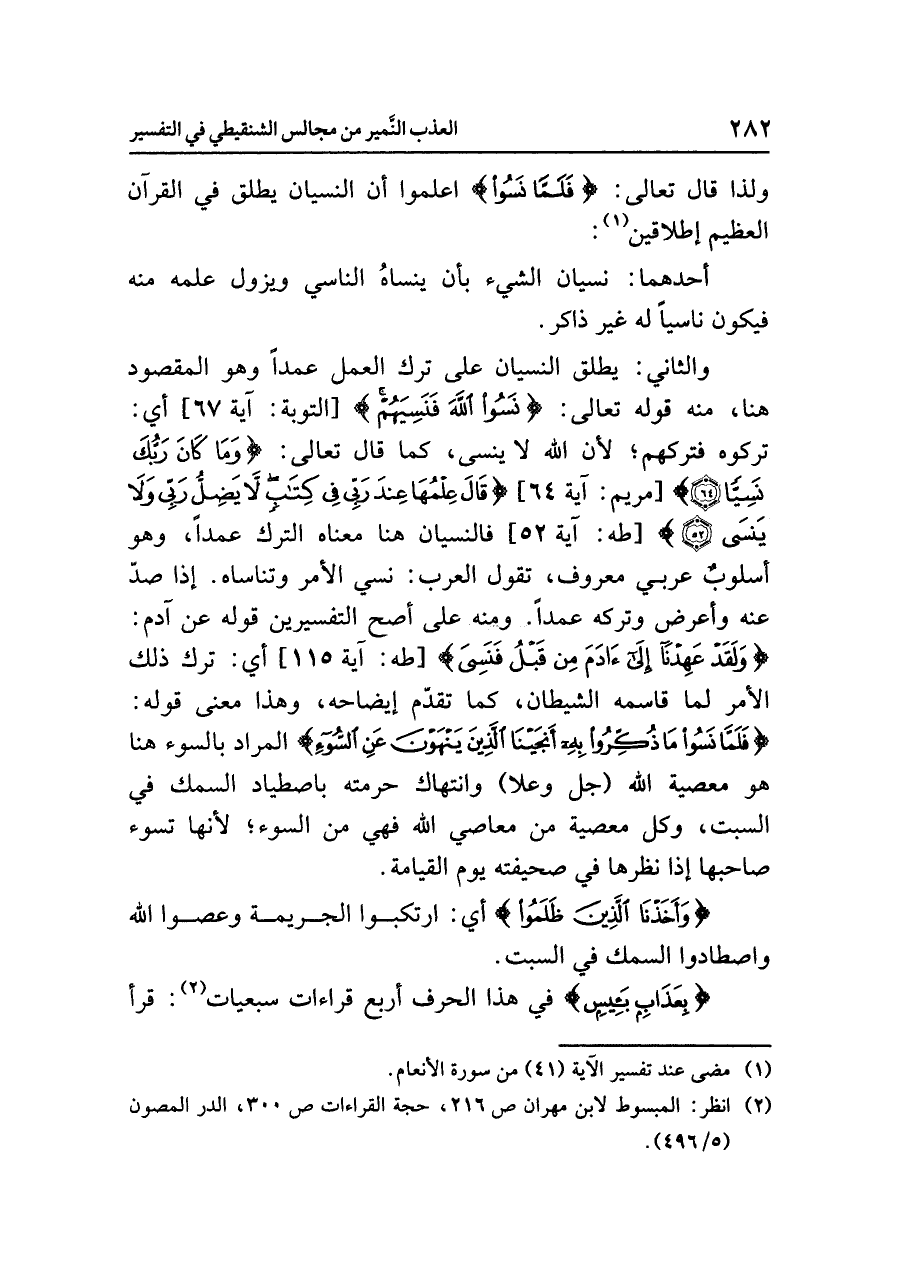 ٢٨٢ العذب النَّمير من مجالس الشنقيطي في التفسير
ولذا قال تعالى: ﴿فَلَمَّا نَسُوا۟﴾ اعلموا أن النسيان يطلق في القرآن
العظيم إطلاقين(١):
أحدهما: نسيان الشيء بأن ينساهُ الناسي ويزول علمه منه
فيكون ناسياً له غير ذاكر.
والثاني: يطلق النسيان على ترك العمل عمداً وهو المقصود
هنا، منه قوله تعالى: ﴿نَسُوا۟ ٱللَّهَ فَنَسِيَهُمْ ۚ﴾ [التوبة: آية ٦٧] أي:
تركوه فتركهم؛ لأن الله لا ينسى، كما قال تعالى: ﴿وَمَا كَانَ رَبُّكَ
نَسِيًّا ٦٤﴾ [مريم: آية ٦٤] ﴿قَالَ عِلْمُهَا عِندَ رَبِّى فِى كِتَٰبٍ ۖ لَّا يَضِلُّ رَبِّى وَلَا
يَنسَى ٥٢﴾ [طه: آية ٥٢] فالنسيان هنا معناه الترك عمداً، وهو
أسلوبٌ عربي معروف، تقول العرب: نسي الأمر وتناساه. إذا صدّ
عنه وأعرض وتركه عمداً. ومنه على أصح التفسيرين قوله عن آدم:
﴿وَلَقَدْ عَهِدْنَآ إِلَىٰٓ ءَادَمَ مِن قَبْلُ فَنَسِىَ﴾ [طه: آية ١١٥] أي: ترك ذلك
الأمر لما قاسمه الشيطان، كما تقدّم إيضاحه، وهذا معنى قوله:
﴿فَلَمَّا نَسُوا۟ مَا ذُكِّرُوا۟ بِهِۦٓ أَنجَيْنَا ٱلَّذِينَ يَنْهَوْنَ عَنِ ٱلسُّوٓءِ﴾ المراد بالسوء هنا
هو معصية الله (جل وعلا) وانتهاك حرمته باصطياد السمك في
السبت، وكل معصية من معاصي الله فهي من السوء؛ لأنها تسوء
صاحبها إذا نظرها في صحيفته يوم القيامة.
﴿وَأَخَذْنَا ٱلَّذِينَ ظَلَمُوا۟﴾ أي: ارتكبوا الجريمة وعصوا الله
واصطادوا السمك في السبت.
﴿بِعَذَابٍۭ بَـِٔيسٍۭ﴾ في هذا الحرف أربع قراءات سبعيات(٢): قرأ
(١) مضى عند تفسير الآية (٤١) من سورة الأنعام.
(٢) انظر: المبسوط لابن مهران ص ٢١٦، حجة القراءات ص ٣٠٠، الدر المصون
(٥/٤٩٦).